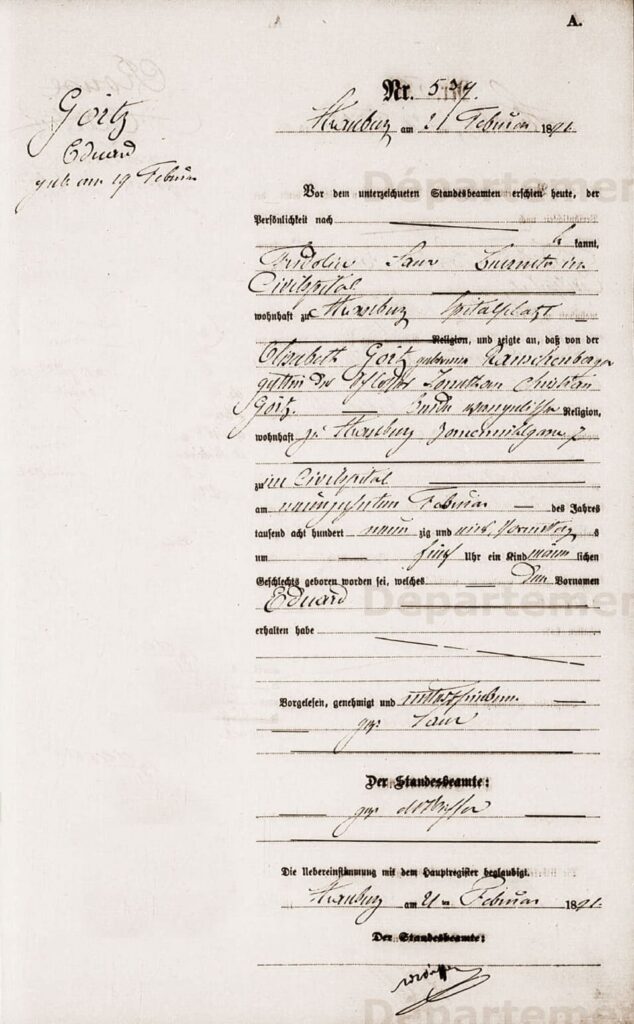 A.
Nr. 539.
Goitz
Eduard
geb. am 19. Februar
Strassburg am 21 Februar 1891.
Vor dem unterzeichneten Standesbeamten erschien heute, der
Persönlichkeit nach
kannt,
Fridolin Saur im
Civilspital
wohnhaft zu Strassburg Spitalplatz
Religion, und zeigte an, daß von der
Elisabeth Goitz geborene
gattin des Schlosser Jonathan Christian
Goitz, Beide evangelischer Religion,
wohnhaft zu Strassburg
zu im Civilspital
am neunzehnten Februar des Jahres
tausend acht hundert neun zig und eins Vormittag s
um fünf Uhr ein Kind männ lichen
Geschlechts geboren worden sei, welches den Vornamen
Eduard
erhalten habe
Vorgelesen, genehmigt und unterschrieben.
gez. Saur
Der Standesbeamte:
gez.
Die Uebereinstimmung mit dem Hauptregister beglaubigt.
Strassburg am 21 ten Februar 1891.
Der Standesbeamte:
Département
Départemen
Départemen